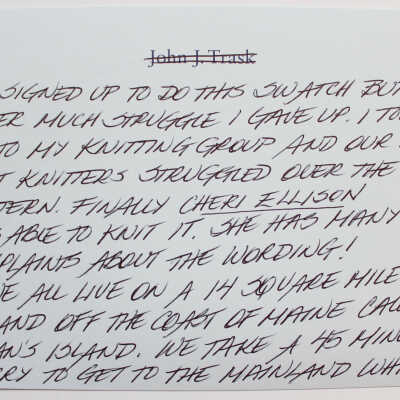 John J. Trask
SIGNED UP TO DO THIS SWATCH BUT
ER MUCH STRUGGLE I GAVE UP. I TO
TO MY KNITTING GROUP AND OUR
T KNITTERS STRUGGLED OVER THE
TERN. FINALLY CHERI ELLISON
S ABLE TO KNIT IT. SHE HAS MANY
PLAINTS ABOUT THE WORDING!
E ALL LIVE ON A 14 SQUARE MILE
AND OFF THE COAST OF MAINE CAL
AN'S ISLAND. WE TAKE A 45 MIN
RY TO GET TO THE MAINLAND WH